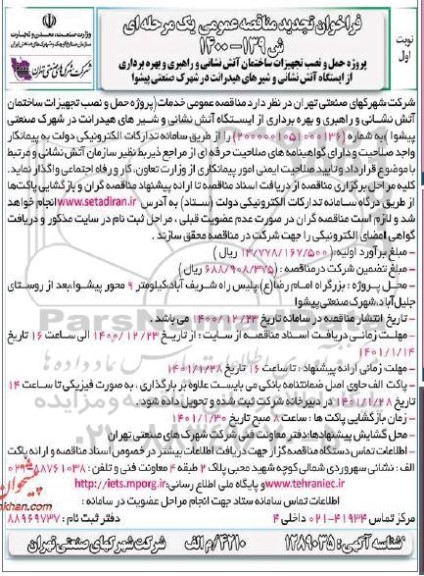 وزارت صنعت، معدن و تجارت
نوبت اول
فراخوان تجدید مناقصه عمومی یک مرحله ای
ش ۱۳۹-۱۴۰۰
پروژه حمل و نصب تجهیزات ساختمان آتش نشانی و راهبری و بهره برداری
از ایستگاه آتش نشانی و شیرهای هیدرانت در شهرک صنعتی پیشوا
شرکت شهرکهای صنعتی تهران
شرکت شهرکهای صنعتی تهران در نظر دارد مناقصه عمومی خدمات (پروژه حمل و نصب تجهیزات ساختمان
آتش نشانی و راهبری و بهره برداری از ایستگاه آتش نشانی و شیر های هیدرانت در شهرک صنعتی
پیشوا) به شماره (۲۰۰۰۰۰۱۰۵۱۰۰۰۱۳۶) را از طریق سامانه تدارکات الکترونیکی دولت به پیمانکار
واجد صلاحیت و دارای گواهینامه های صلاحیت حرفه ای از مراجع ذیربط نظیر سازمان آتش نشانی و مرتبط
با موضوع قرارداد و تایید صلاحیت ایمنی امور پیمانکاری از وزارت تعاون، کار و رفاه اجتماعی واگذار نماید.
کلیه مراحل برگزاری مناقصه از دریافت اسناد مناقصه تا ارائه پیشنهاد مناقصه گران و بازگشایی پاکت‌ها
از طریق درگاه سامانه تدارکات الکترونیکی دولت (ستاد) به آدرس www.setadiran.ir انجام خواهد
شد و لازم است مناقصه گران در صورت عدم عضویت قبلی، مراحل ثبت نام در سایت مذکور و دریافت
گواهی امضای الکترونیکی را جهت شرکت در مناقصه محقق سازند.
- مبلغ برآورد اولیه: (۱۳/۷۷۸/۱۶۷/۵۰۰ ریال)
- مبلغ تضمین شرکت در مناقصه: (۶۸۸/۹۰۸/۳۷۵ ریال)
- محل پروژه: بزرگراه امام رضا(ع) پلیس راه شریف آباد کیلومتر ۹ محور پیشوا، بعد از روستای
جلیل آباد، شهرک صنعتی پیشوا
- تاریخ انتشار مناقصه در سامانه تاریخ ۱۴۰۰/۱۲/۲۳ می باشد.
- مهلت زمانی دریافت اسناد مناقصه از سایت: از تاریخ ۱۴۰۰/۱۲/۲۳ الی ساعت ۱۶ تاریخ
۱۴۰۱/۱/۱۴
- مهلت زمانی ارائه پیشنهاد: تا ساعت ۱۶ تاریخ ۱۴۰۱/۱/۲۸
- پاکت الف حاوی اصل ضمانتنامه بانکی می بایست علاوه بر بارگذاری، به صورت فیزیکی تا ساعت ۱۴
تاریخ ۱۴۰۱/۱/۲۸ در دبیرخانه شرکت ثبت شده و تحویل داده شود.
- زمان بازگشایی پاکت ها: ساعت ۸ صبح تاریخ ۱۴۰۱/۱/۳۰
- محل گشایش پیشنهادها: دفتر معاونت فنی شرکت شهرک های صنعتی تهران
- اطلاعات تماس دستگاه مناقصه گزار جهت دریافت اطلاعات بیشتر در خصوص اسناد مناقصه و ارائه پاکت
الف: نشانی سهروردی شمالی کوچه شهید محبی پلاک ۲ طبقه ۴ معاونت فنی و تلفن: ۸۸۷۶۱۰۳۸
www.tehraniec.ir و پایگاه ملی اطلاع رسانی: http://iets.mporg.ir
اطلاعات تماس سامانه ستاد جهت انجام مراحل عضویت در سامانه:
مرکز تماس ۴۱۹۳۴-۰۲۱ داخلی ۴ دفتر ثبت نام: ۸۸۹۶۹۷۳۷
شناسه آگهی: ۱۲۸۹۰۳۵ ۴۲۱۰/م الف شرکت شهرکهای صنعتی تهران